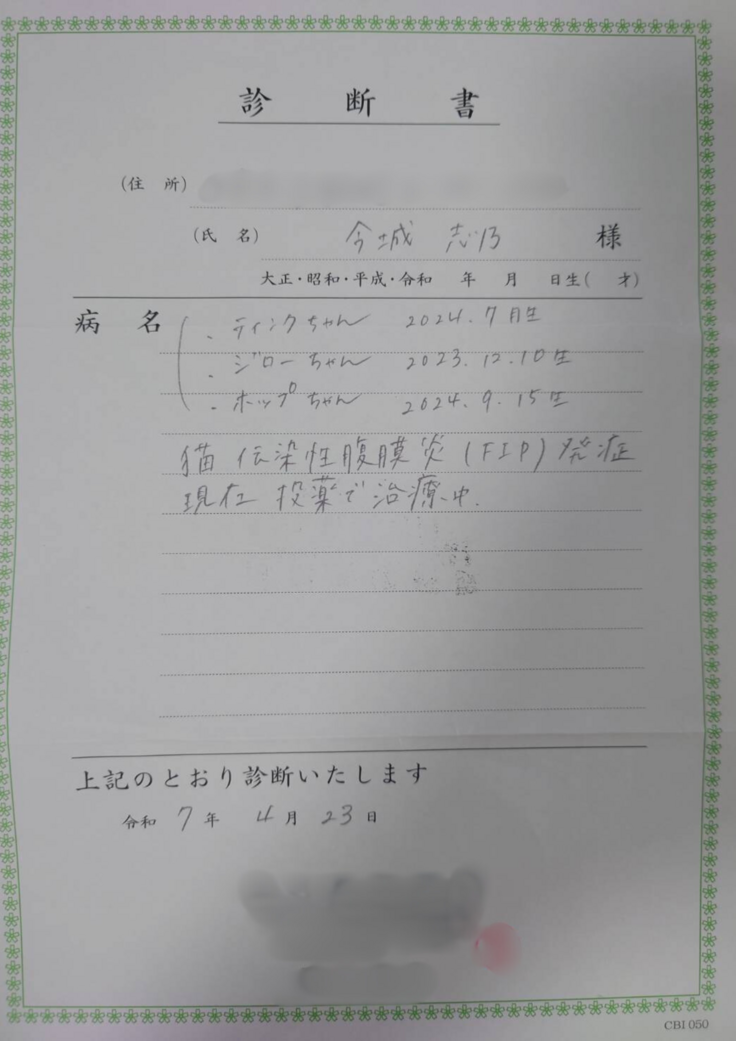 診断書
(住 所)
(氏 名) 今城 志乃 様
大正・昭和・平成・令和 年 月 日生( 才)
病 名
・ティンクちゃん 2024.7月生
・ジローちゃん 2023.12.10生
・ホップちゃん 2024.9.15生
猫伝染性腹膜炎(FIP)発症
現在 投薬で治療中.
上記のとおり診断いたします
令和 7年 4月 23日
CBI 050